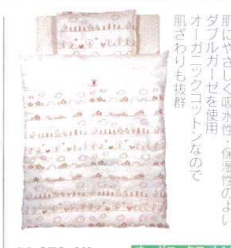 肌にやさしく吸水性・保温性のよい
ダブルガーゼを使用
オーガニックコットンなので
肌ざわりも抜群